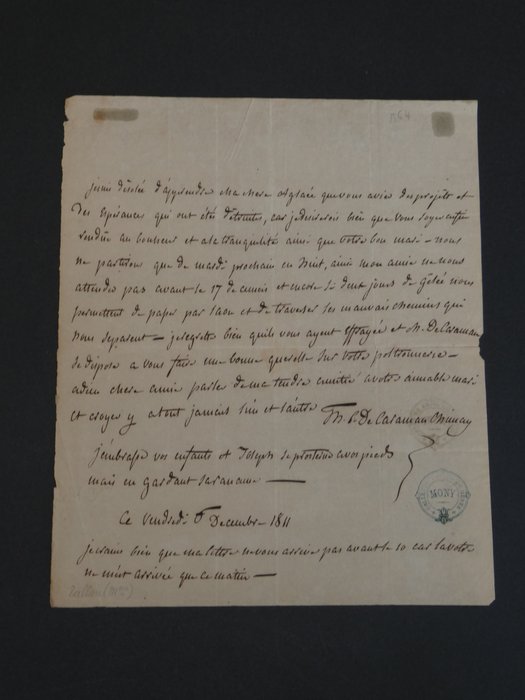 164
je suis désolée d'apprendre ma chere Aglaée que vous aviez des projets et
des espérances qui ont étés détruites, car je desirerois bien que vous soyez enfin
rendue au bonheur et a la tranquilité ainsi que votre bon mari — nous
ne partirons que de mardi prochain en huit, ainsi mon amie ne nous
attendez pas avant le 17 de ce mois et encore si deux jours de gelée nous
permettent de passer par Laon et de traverser les mauvais chemins qui
nous separent — je regrette bien quils vous ayent effrayée et M. De Caraman
se dispose a vous faire une bonne querelle sur votre poltronnerie —
adieu chere amie parlez de ma tendre amitié a votre aimable mari
et croyez y a tout jamais l'un et l'autre Th. C. De Caraman Chimay
j'embrasse vos enfants et Joseph se prosterne a vos pieds
mais en gardant sa rancune —
Ce vendredi 6 Decembre 1811
je crains bien que ma lettre ne vous arrive pas avant le 10 car la votre
ne m'est arrivée que ce matin —
Tallien (Mme)
MONY